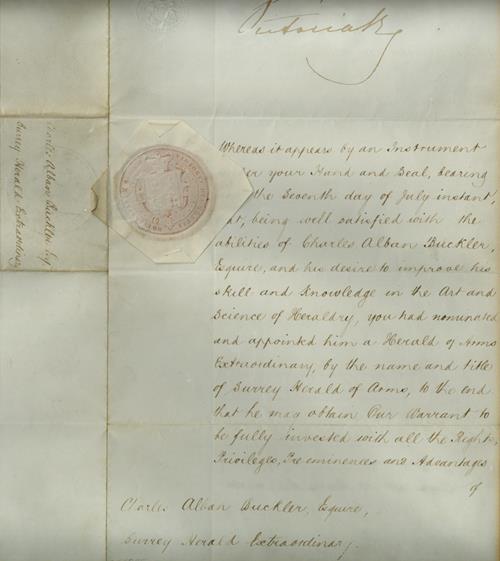 Victoria R
Whereas it appears by an Instrument
your Hand and Seal, bearing
the Seventh day of July instant,
being well satisfied with the
abilities of Charles Alban Buckler,
Esquire, and his desire to improve his
skill and Knowledge in the Art and
Science of Heraldry, you had nominated
and appointed him a Herald of Arms
Extraordinary, by the name and title
of Surrey Herald of Arms, to the end
that he may obtain Our Warrant to
be fully invested with all the Rights,
Privileges, Pre eminences and Advantages
of
Charles Alban Buckler, Esquire,
Surrey Herald Extraordinary.
Charles Alban Buckler Esq
Surrey Herald Extraordinary